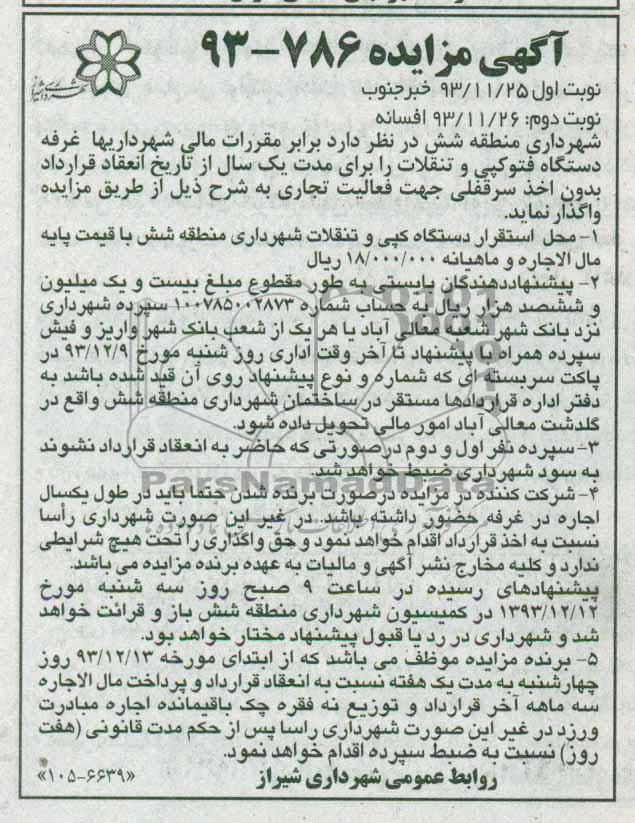 آگهی مزایده ۷۸۶-۹۳
نوبت اول ۹۳/۱۱/۲۵ خبرجنوب
نوبت دوم: ۹۳/۱۱/۲۶ افسانه
شهرداری منطقه شش در نظر دارد برابر مقررات مالی شهرداریها غرفه
دستگاه فتوکپی و تنقلات را برای مدت یک سال از تاریخ انعقاد قرارداد
بدون اخذ سرقفلی جهت فعالیت تجاری به شرح ذیل از طریق مزایده
واگذار نماید.
۱- محل استقرار دستگاه کپی و تنقلات شهرداری منطقه شش با قیمت پایه
مال الاجاره و ماهیانه ۱۸/۰۰۰/۰۰۰ ریال
۲- پیشنهاددهندگان بایستی به طور مقطوع مبلغ بیست و یک میلیون
و ششصد هزار ریال به حساب شماره ۱۰۰۷۸۵۰۰۲۸۷۳ سپرده شهرداری
نزد بانک شهر شعبه معالی آباد یا هر یک از شعب بانک شهر واریز و فیش
سپرده همراه با پیشنهاد تا آخر وقت اداری روز شنبه مورخ ۹۳/۱۲/۹ در
پاکت سربسته ای که شماره و نوع پیشنهاد روی آن قید شده باشد به
دفتر اداره قراردادها مستقر در ساختمان شهرداری منطقه شش واقع در
گلدشت معالی آباد امور مالی تحویل داده شود.
۳- سپرده نفر اول و دوم درصورتی که حاضر به انعقاد قرارداد نشوند
به سود شهرداری ضبط خواهد شد.
ParsNamadData
۴- شرکت کننده در مزایده درصورت برنده شدن حتما باید در طول یکسال
اجاره در غرفه حضور داشته باشد در غیر این صورت شهرداری رأسا
نسبت به اخذ قرارداد اقدام خواهد نمود و حق واگذاری را تحت هیچ شرایطی
ندارد و کلیه مخارج نشر آگهی و مالیات به عهده برنده مزایده می باشد.
پیشنهادهای رسیده در ساعت ۹ صبح روز سه شنبه مورخ
۱۳۹۳/۱۲/۱۲ در کمیسیون شهرداری منطقه شش باز و قرائت خواهد
شد و شهرداری در رد یا قبول پیشنهاد مختار خواهد بود.
۵- برنده مزایده موظف می باشد که از ابتدای مورخه ۹۳/۱۲/۱۳ روز
چهارشنبه به مدت یک هفته نسبت به انعقاد قرارداد و پرداخت مال الاجاره
سه ماهه آخر قرارداد و توزیع نه فقره چک باقیمانده اجاره مبادرت
ورزد در غیر این صورت شهرداری راسا پس از حکم مدت قانونی (هفت
روز) نسبت به ضبط سپرده اقدام خواهد نمود.
روابط عمومی شهرداری شیراز
«۱۰۵-۶۶۳۹»